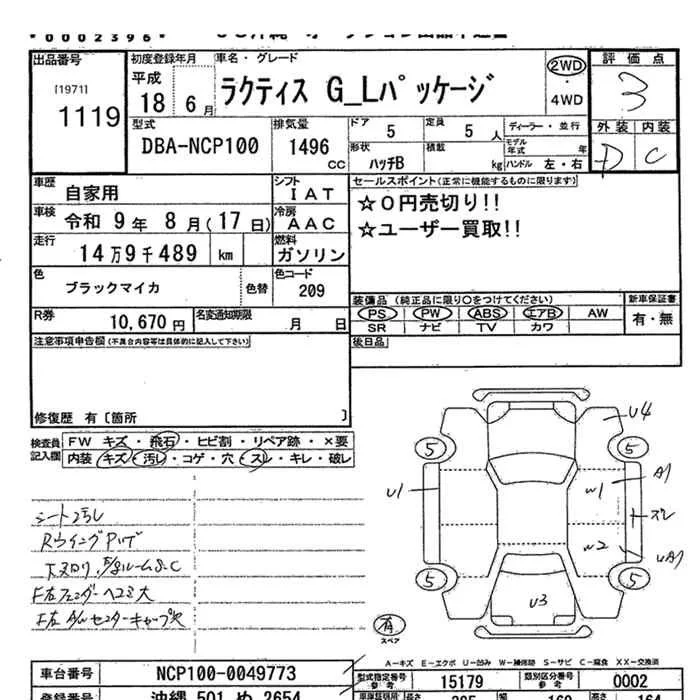 0002396
出品番号
[1971]
1119
初度登録年月
平成
18 6月
車名・グレード
ラクティス G_Lパッケージ
2WD
4WD
評価点
3
外装 内装
D C
型式
DBA-NCP100
排気量
1496
CC
ドア 5
定員 5 人
形状 ハッチB
積載 kg
ディーラー・並行
モデル年式 年
ハンドル 左・右
車歴 自家用
シフト
IAT
セールスポイント(正常に機能するものに限ります)
☆0円売切り!!
☆ユーザー買取!!
車検 令和 9年 8月(17日)
冷房
AAC
走行 14万9千489 km
燃料
ガソリン
色 ブラックマイカ 色替
色コード
209
R券 10,670円
名変通知期限 月 日
装備品(純正品に限り○をつけてください)
PS PW ABS エアB AW
SR ナビ TV カワ
新車保証書
有・無
注意事項申告欄(不具合内容等は具体的に記入して下さい)
後日品
修復歴 有〔箇所 〕
検査員記入欄
FW キズ・飛石・ヒビ割・リペア跡・×要
内装 キズ・汚レ・コゲ・穴・スレ・キレ・破レ
シート汚レ
F左フェンダーヘコミ大
U4
5 5
A1
U1
W1
スレ
W2
UA1
5 5
U3
有
スペア
A-キズ E-エクボ U-凹み W-補修跡 S-サビ C-腐食 XX-交換済
車台番号 NCP100-0049773
型式指定番号
参考
15179
類別区分番号
参考
0002
登録番号 沖縄 501 ぬ 2654